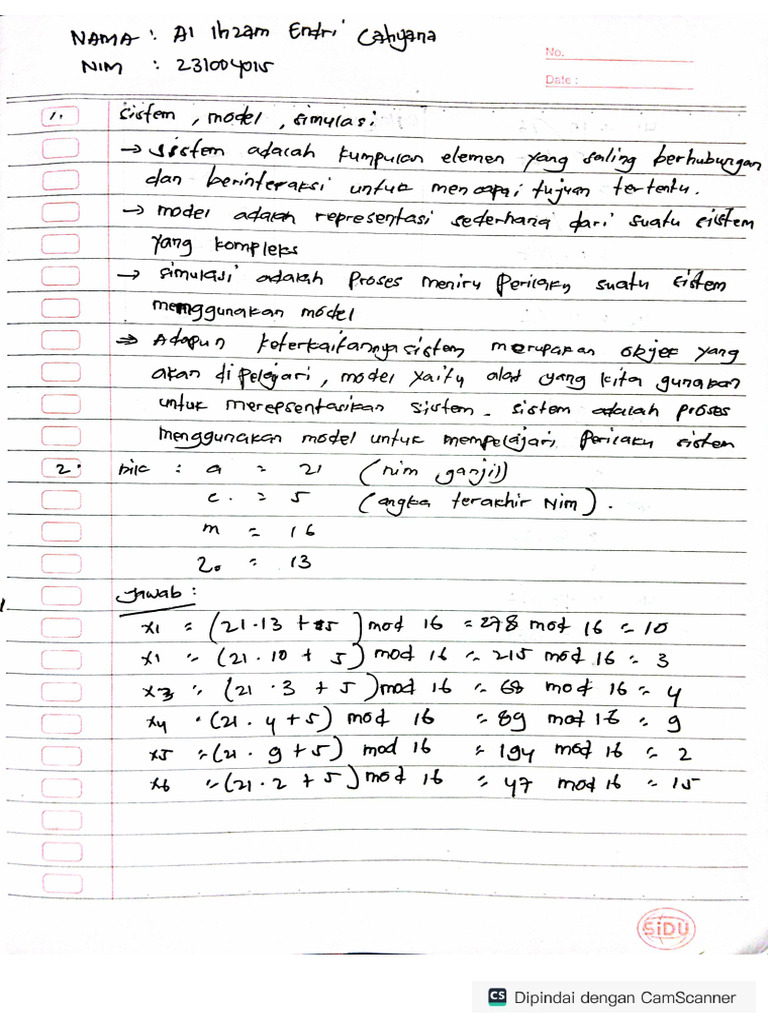 NAMA : Al Ihzam Endri Cahyana
NIM : 231004015
No.
Date :
1. sistem, model, simulasi
→ sistem adalah kumpulan elemen yang saling berhubungan
dan berinteraksi untuk mencapai tujuan tertentu.
→ model adalah representasi sederhana dari suatu sistem
yang kompleks
→ simulasi adalah proses meniru perilaku suatu sistem
menggunakan model
⇒ Adapun keterkaitannya sistem merupakan objek yang
akan dipelajari, model yaitu alat yang kita gunakan
untuk merepsentasikan sistem. sistem adalah proses
menggunakan model untuk mempelajari perilaku sistem
2. Dik : a = 21 (nim ganjil)
c. = 5 (angka terakhir Nim).
m = 16
Z₀ = 13
Jawab :
x1 = (21 . 13 + 5) mod 16 = 278 mod 16 = 10
x1 = (21 . 10 + 5) mod 16 = 215 mod 16 = 3
x3 = (21 . 3 + 5) mod 16 = 68 mod 16 = 4
x4 = (21 . 4 + 5) mod 16 = 89 mod 16 = 9
x5 = (21 . 9 + 5) mod 16 = 194 mod 16 = 2
x6 = (21 . 2 + 5) mod 16 = 47 mod 16 = 15
SiDU
CS Dipindai dengan CamScanner